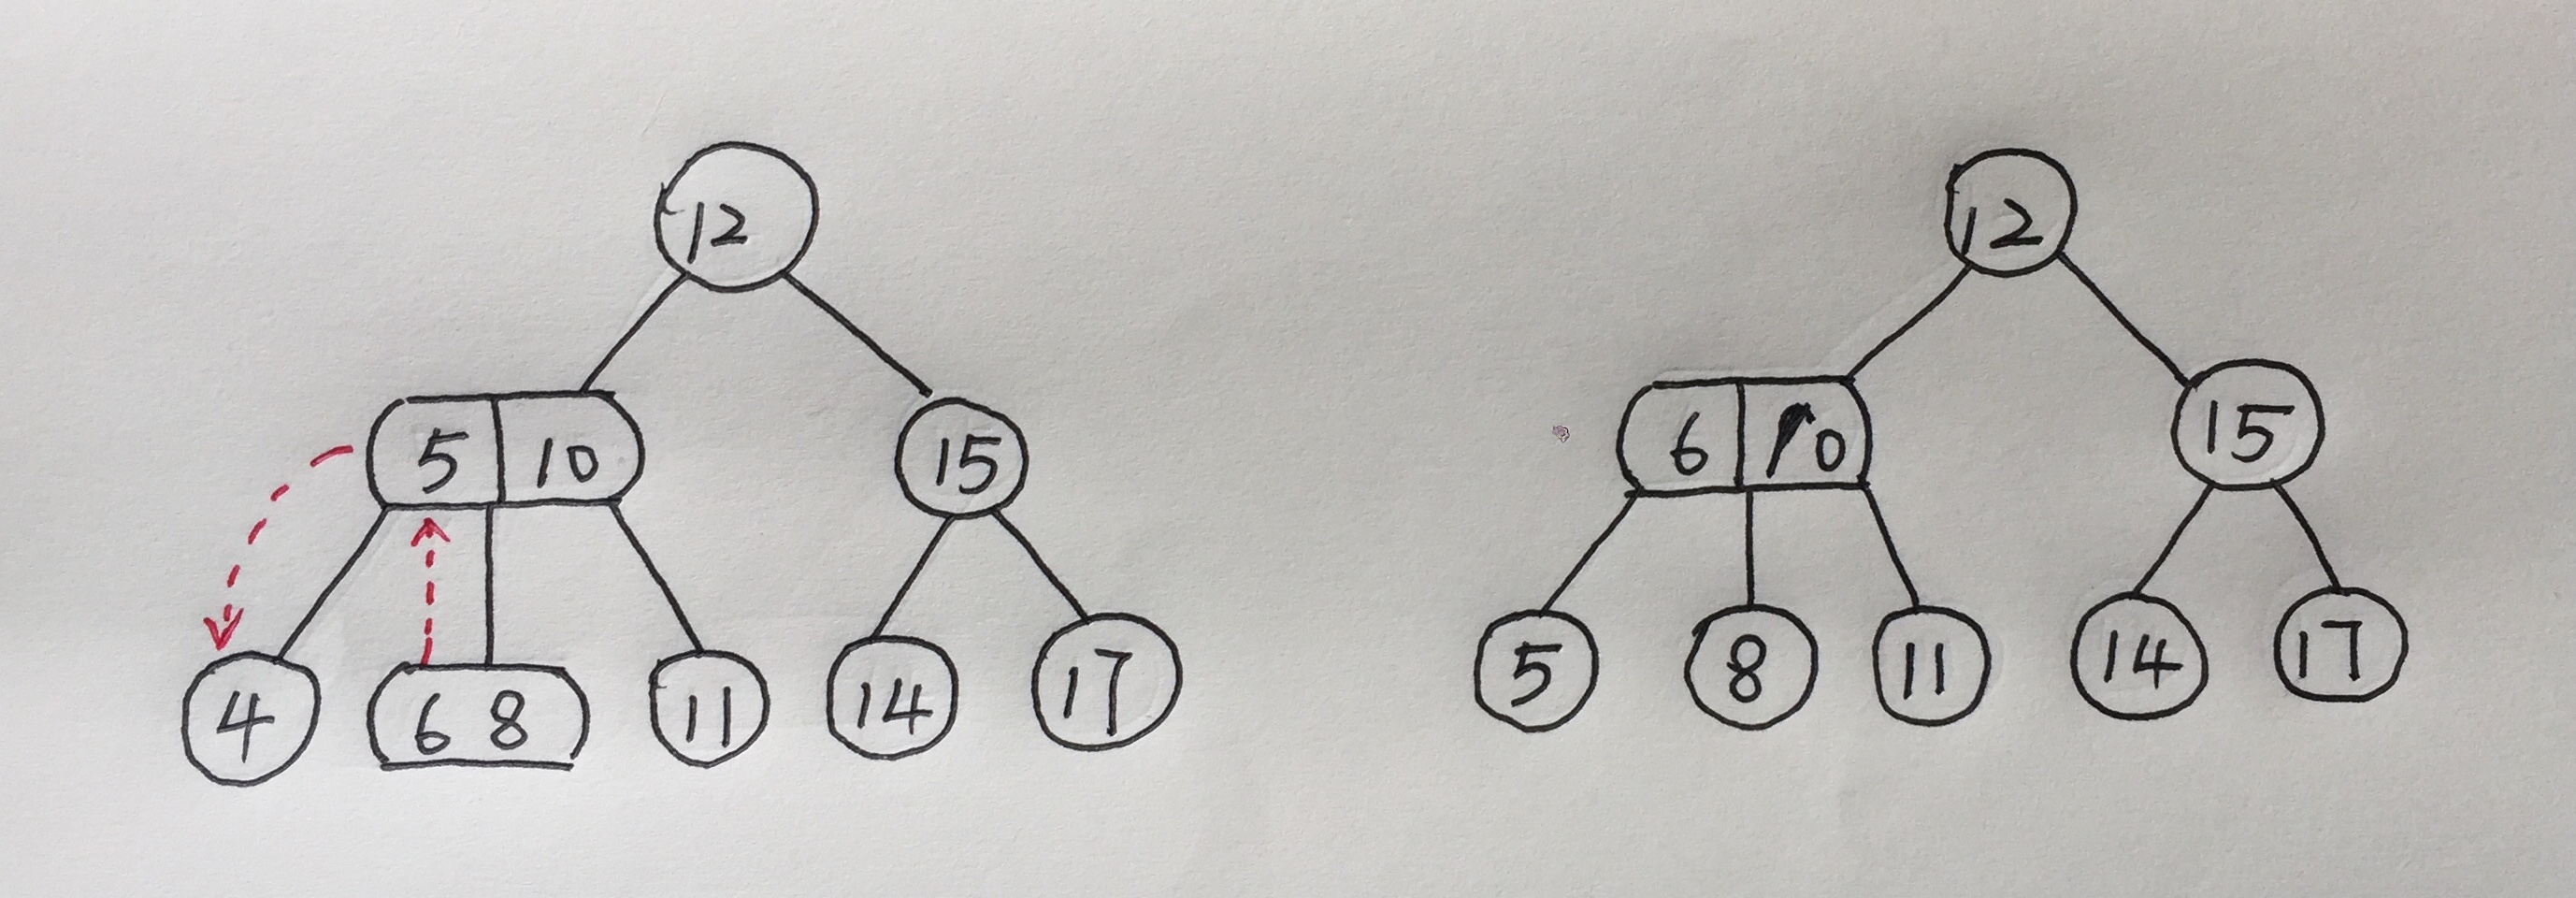 12
5 10
15
4
6 8
11
14
17
12
6 10
15
5
8
11
14
17